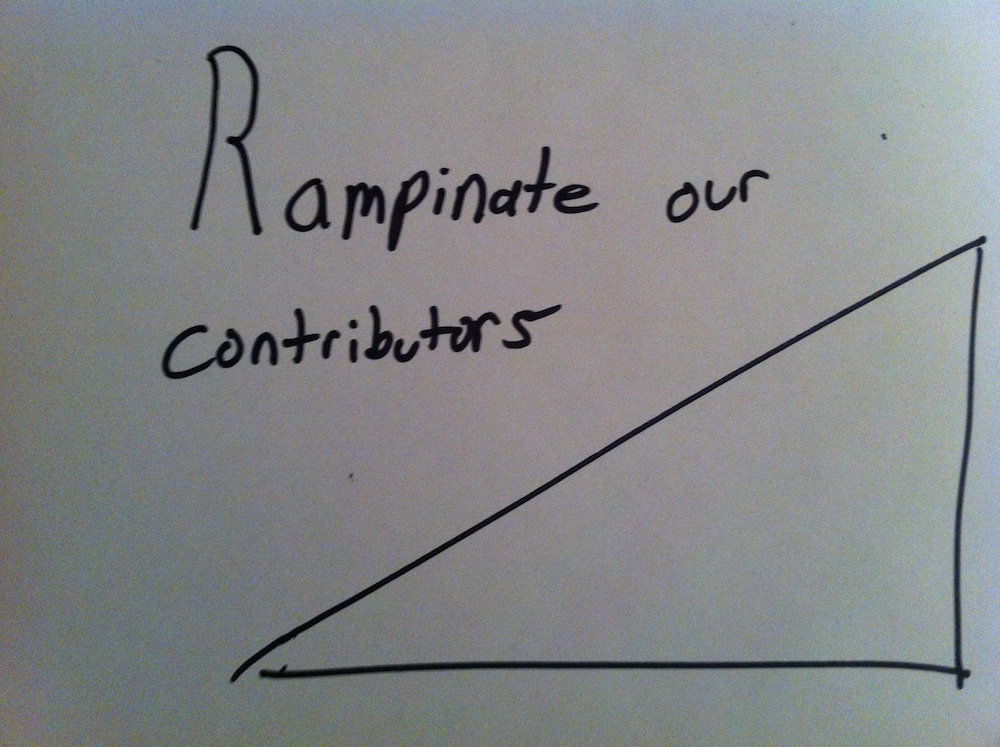 Rampinate our
contributors